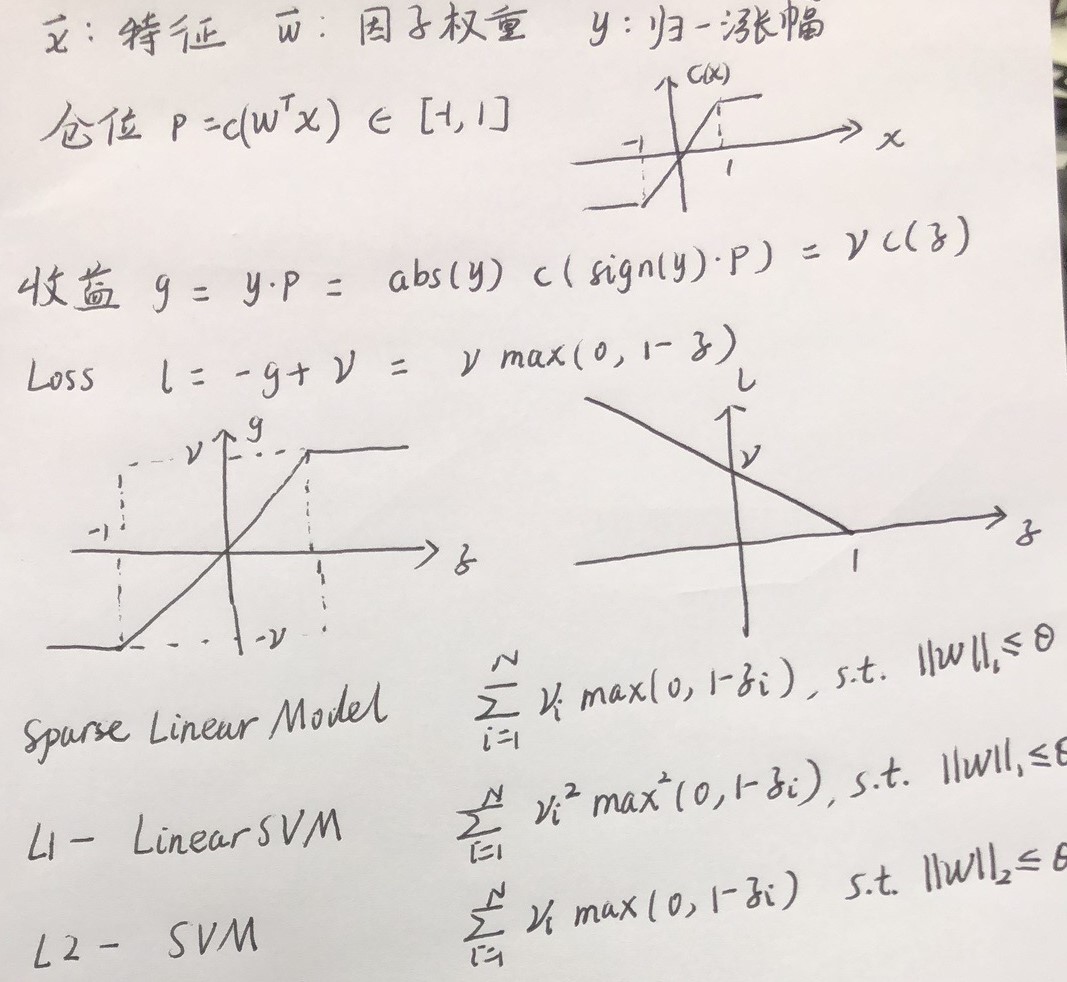 x⃗ : 特征 w⃗ : 因子权重 y : 归一涨幅
仓位 P = c(wᵀx) ∈ [-1, 1]
c(x)
-1
1
x
收益 g = y·p = abs(y) c(sign(y)·p) = ν c(z)
Loss l = -g + ν = ν max(0, 1-z)
g
ν
-1
z
-ν
l
ν
1
z
Sparse Linear Model ∑_{i=1}^{N} νᵢ max(0, 1-zᵢ), s.t. ||w||₁ ≤ θ
L1 - Linear SVM ∑_{i=1}^{N} νᵢ² max²(0, 1-zᵢ), s.t. ||w||₁ ≤ θ
L2 - SVM ∑_{i=1}^{N} νᵢ max(0, 1-zᵢ) s.t. ||w||₂ ≤ θ